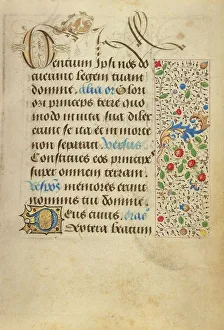 Gentium ipsi nos do
cuerunt legem tuam
domine. alia or Glori
osi principes terre quo
modo in vita sua dilex
erunt ita et in morte
non separati Versus
Constitues eos principes
super omnem terram.
Respons memores erunt
nominis tui domine
Deus cuius
dextera beatum